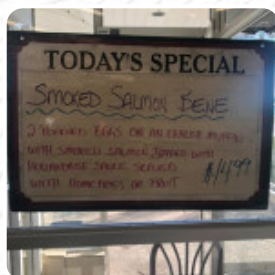 TODAY'S SPECIAL
SMOKED SALMON BENE
2 POACHED EGGS ON AN ENGLISH MUFFIN
WITH SMOKED SALMON TOPPED WITH
HOLLANDAISE SAUCE SERVED
WITH HOMEFRIES OR FRUIT
$14.99